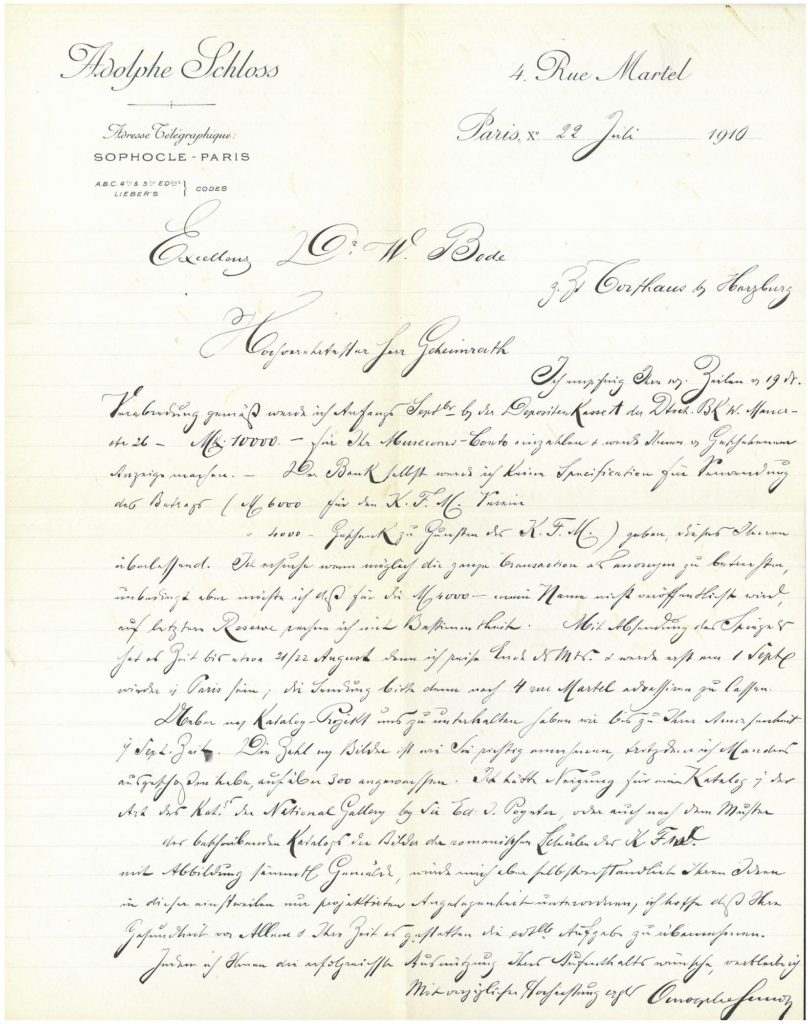 Adolphe Schloss
4. Rue Martel
Adresse Télégraphique:
SOPHOCLE-PARIS
A.B.C. 4th & 5th EDons
LIEBER'S
CODES
Paris, Xe 22 Juli 1910
Excellenz Dr. W. Bode
z. Zt Torfhaus b/ Harzburg
Hochverehrtester Herr Geheimrath
Ich empfing Ihre Zeilen v 19 ds.
Verabredung gemäß werde ich Anfangs Septbr by der Depositen Kasse A der Dtsch. BK W. Mauer-
str 26 – Mk. 10000.– für Ihr Museums-Conto einzahlen & werde Ihnen v Geschehenem
Anzeige machen. – Der Bank selbst werde ich keine Specification für Verwendung
des Betrags ( M 6000 für den K. F. M. Verein
" 4000 – Geschenk zu Gunsten des K. F. M.) geben, dieses Ihnen
überlassend. Ich ersuche wenn möglich die ganze Transaction als anonym zu betrachten,
unbedingt aber möchte ich daß für die M 4000– mein Name nicht veröffentlicht wird,
auf letztere Reserve rechne ich mit Bestimmtheit. Mit Absendung des Spiegels
hat es Zeit bis etwa 21/22 August denn ich reise Ende ds Mts. & werde erst am 1 Septr
wieder i/ Paris sein; die Sendung bitte dann nach 4 rue Martel adressieren zu lassen.
Ueber mein Katalog-Projekt uns zu unterhalten haben wir bis zu Ihrer Anwesenheit
i/ Sept. Zeit. Die Zahl m/ Bilder ist wie Sie richtig annehmen, trotzdem ich Manches
ausgeschoßen habe, auf über 300 angewachsen. Ich hätte Neigung für einen Katalog i/ der
Art des Katgs der National Gallery by Sir Ed. J. Poynter, oder auch nach dem Muster
des beschreibenden Katalogs der Bilder der romanischen Schulen des K. F. M.
mit Abbildung sämmtl Gemälde, würde mich aber selbstverständlich Ihren Ideen
in dieser einstweilen nur projektirten Angelegenheit unterordnen, ich hoffe daß Ihre
Gesundheit vor Allem & Ihre Zeit es gestatten die Aufgabe zu übernehmen.
Indem ich Ihnen die erfolgreichste Ausnützung Ihres Aufenthalts wünsche, verbleibe ich
Mit vorzüglicher Hochachtung
Adolphe Schloss